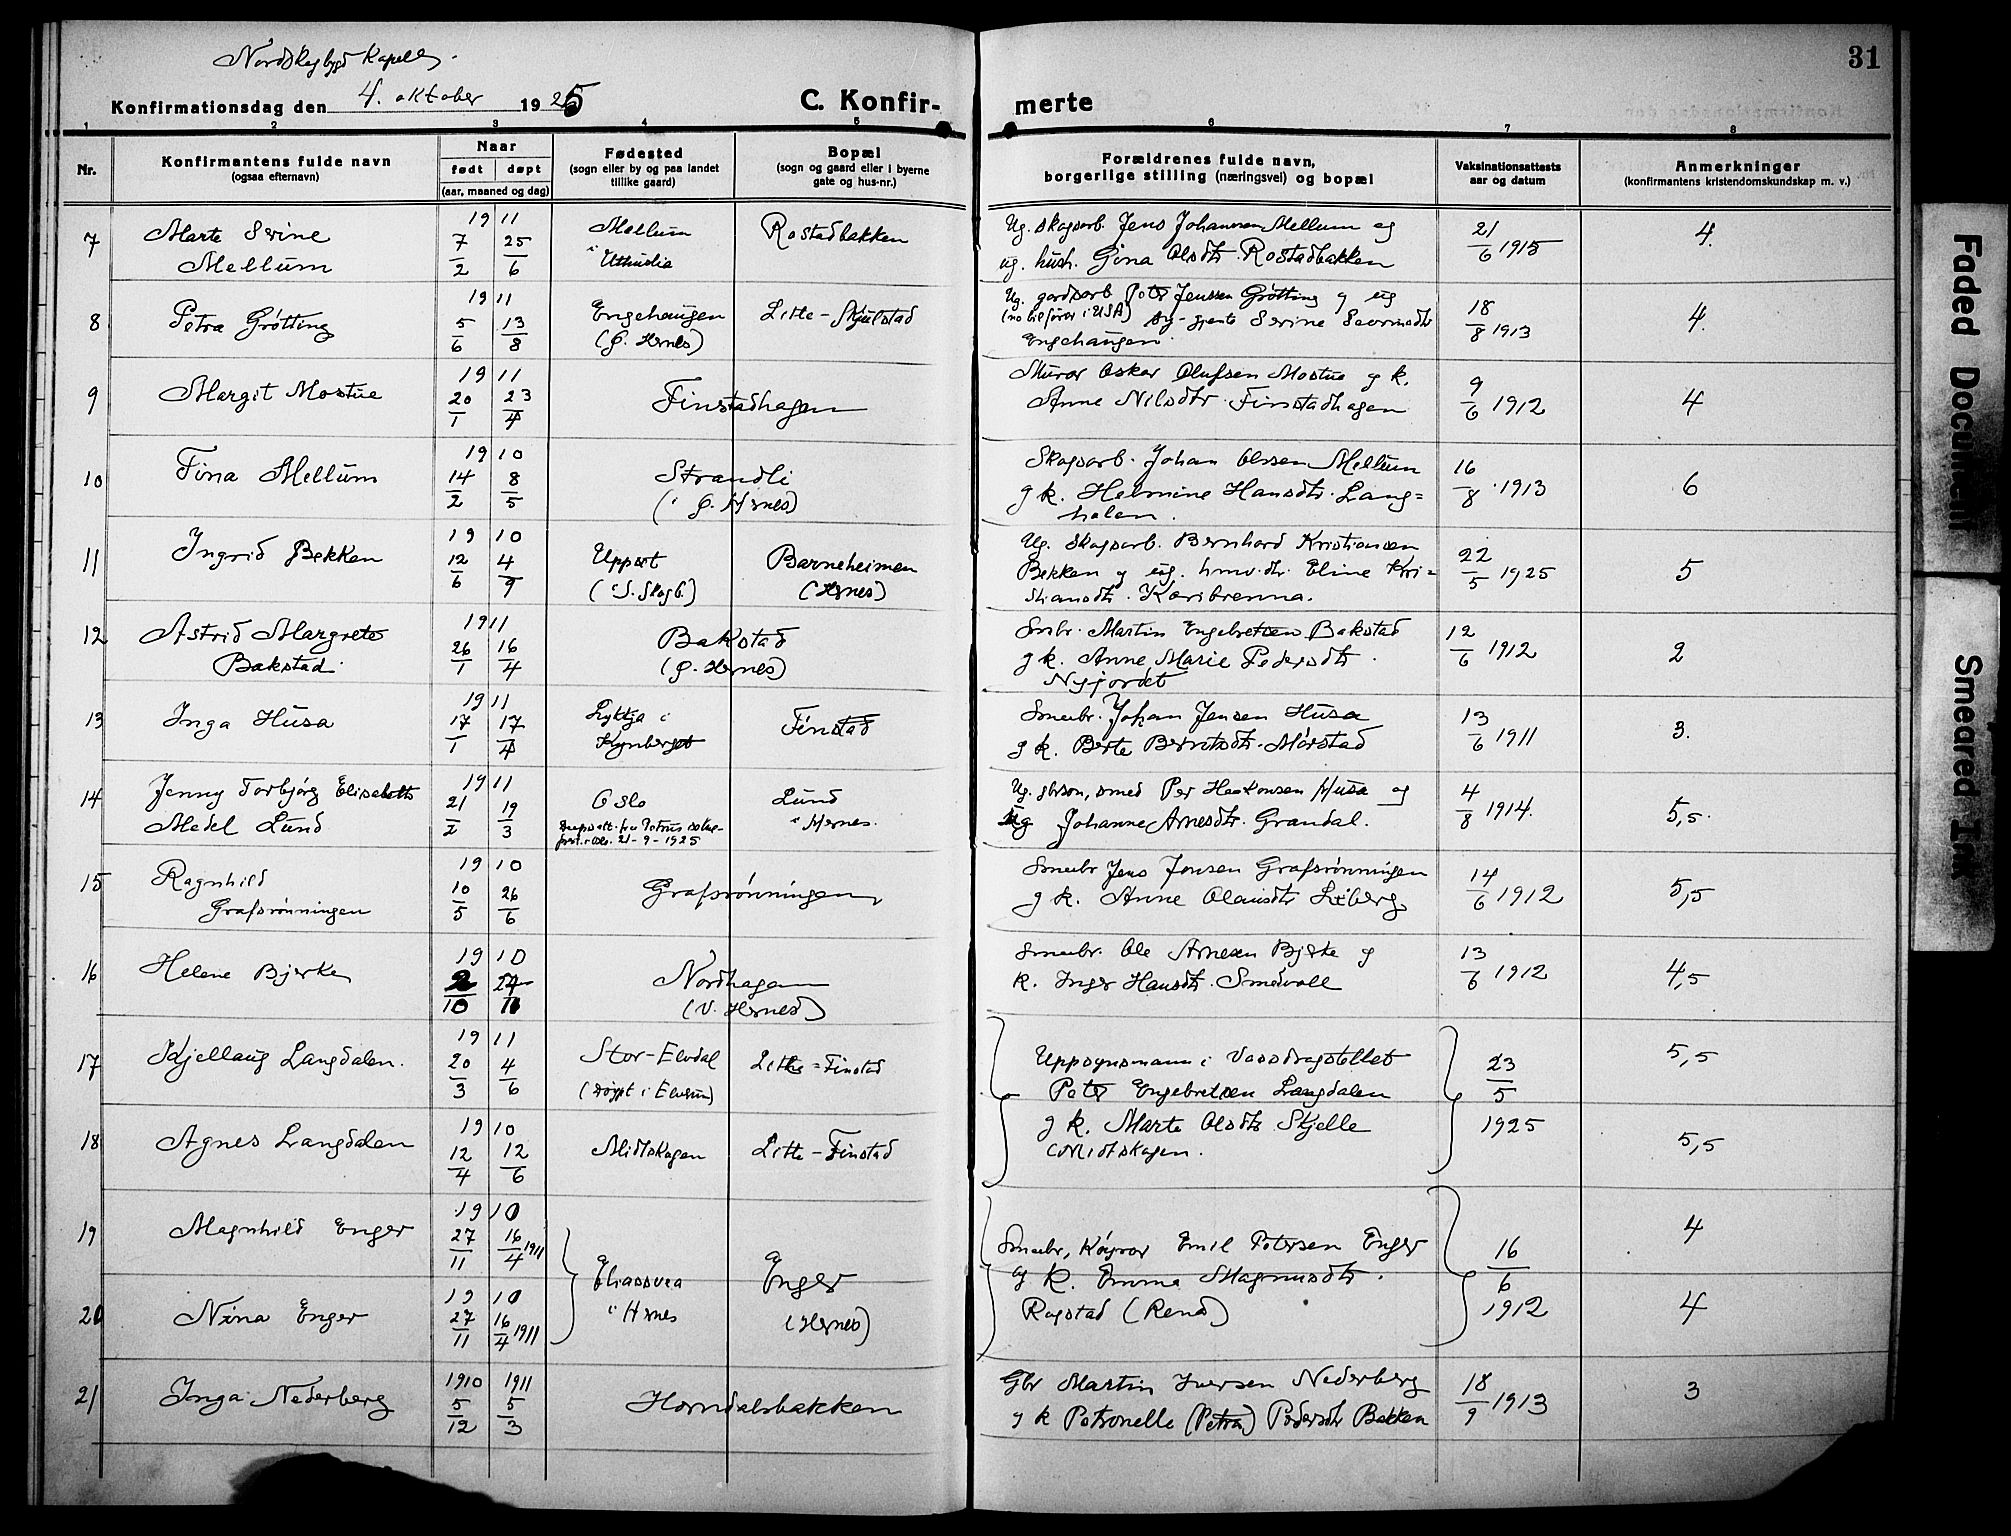 31
Nordskogbygd Kapell.
Konfirmationsdag den 4. oktober 1925
C. Konfir-
merte
1 2 3 4 5 6 7 8
Nr.
Konfirmantens fulde navn
(ogsaa efternavn)
Naar
født døpt
(aar, maaned og dag)
Fødested
(sogn eller by og paa landet
tillike gaard)
Bopæl
(sogn og gaard eller i byerne
gate og hus-nr.)
Forældrenes fulde navn,
borgerlige stilling (næringsvei) og bopæl
Vaksinationsattests
aar og datum
Anmerkninger
(konfirmantens kristendomskundskap m. v.)
7 Marte Serine
Mellum
1911
7/2 25/6
Mellum
i
Rostadbakken
Ug. skogsarb. Jens Johannsen Mellum og
ug. hush. Gina Olsdtr. Rostadbakken
21/6 1915
4.
8 Petra Grøtting
1911
5/6 13/8
Engehaugen
(Ø. Hernes)
Litle-Skjulstad
Ug. gardsarb. Peter Jenssen Grøtting og ug
(no bilfører i USA) Serine
Engehaugen
18/8 1913
4.
9 Margit Mostue
1911
20/1 23/4
Finstadhagen
Murar Oskar Olufsen Mostue og k.
Anne Nilsdtr. Finstadhagen
9/6 1912
4
10 Tina Mellum
1910
14/2 8/5
Strandli
(i Ø. Hernes)
Skogsarb. Johan Olssen Mellum
og k. Helmine Hansdtr. Lang=
holen.
16/8 1913
6
11 Ingrid Bekken
1910
12/6 4/9
Uppset
(i S. Skogb.)
Barneheimen
(Hernes)
Ug. Skogsarb. Bernhard Kristiansen
Bekken og ug. hmv. dtr. Eline Kri=
stiansdtr. Karibrenna.
22/5 1925
5
12 Astrid Margrete
Bakstad.
1911
26/1 16/4
Bakstad
(Ø. Hernes)
Smbr. Martin Engebretsen Bakstad
og k. Anne Marie Pedersdtr.
Nyjordet
12/6 1912
2
13 Inga Husa
1911
17/1 17/4
Lykkja i
Kynberget
Finstad
Smabr. Johan Jensen Husa
og k. Berte Berntsdtr. Mørstad
13/6 1911
3.
14 Jenny Torbjørg Elisabeth
Medel Lund
1911
21/2 19/3
Oslo
21-9-1925
Lund
i Hernes.
Ug. gbrson, smed Per Haakonsen Husa og
ug Johanne Arnesdtr. Grandal.
4/8 1914.
5,5.
15 Ragnhild
Grafsrønningen
1910
10/5 26/6
Grafsrønningen
Smabr Jens Jonsen Grafsrønningen
og k. Anne Olausdtr Liberg
14/6 1912
5,5
16 Helene Bjerke
1910
2/10 27/11
Nordhagen
(V. Hernes)
Smabr. Ole Arnesen Bjerke og
k. Inger Hansdtr. Smedvoll
13/6 1912
4,5
17 Kjellaug Langdalen.
1911
20/3 4/6
Stor-Elvdal
(døypt i Elverum)
Litle-Finstad
Uppsynsmann i Vassdragstellet
Peter Engebretsen Langdalen
og k. Marte Olsdtr Skjelle
Midtskogen.
23/5
1925
5,5
18 Agnes Langdalen
1910
12/4 12/6
Midtskogen
Litle-Finstad
5,5
19 Magnhild Enger
1910
27/11 16/4 1911
Eliassvea
i Hernes
Enger
(Hernes)
Smabr, Køyrar Emil Petersen Enger
og k. Emma Magnusdtr.
Rogstad (Rena)
16/6
1912
4
20 Nina Enger
1910
27/11 16/4 1911
4
21 Inga Nederberg
1910 1911
5/12 5/3
Horndalsbakken
Gbr Martin Iversen Nederberg
og k Petronelle (Petra) Pedersdtr Bakken
18/9 1913
3
Faded Document
Smeared Ink